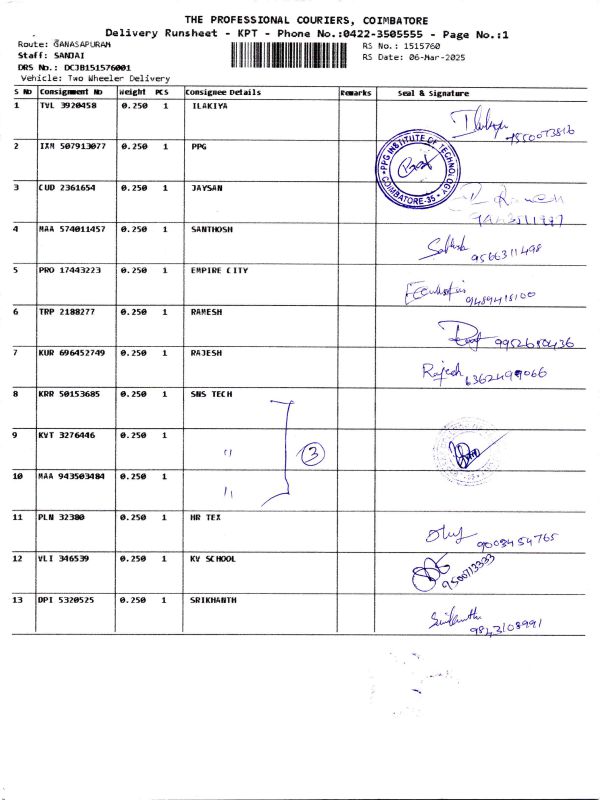 THE PROFESSIONAL COURIERS, COIMBATORE
Delivery Runsheet - KPT - Phone No.:0422-3505555 - Page No.:1
Route: GANASAPURAM
RS No.: 1515760
Staff: SANJAI
RS Date: 06-Mar-2025
DRS No.: DCJB151576001
Vehicle: Two Wheeler Delivery
S No Consignment No Weight PCS Consignee Details Remarks Seal & Signature
1 TVL 3920458 0.250 1 ILAKIYA
2 IXM 507913077 0.250 1 PPG
PPG INSTITUTE OF TECHNOLOGY
COIMBATORE-35
3 CUD 2361654 0.250 1 JAYSAN
4 MAA 574011457 0.250 1 SANTHOSH
9566311498
5 PRO 17443223 0.250 1 EMPIRE CITY
9489415100
6 TRP 2188277 0.250 1 RAMESH
7 KUR 696452749 0.250 1 RAJESH
Rajesh 6362499066
8 KRR 50153685 0.250 1 SNS TECH
9 KVT 3276446 0.250 1 " 3
10 MAA 943503484 0.250 1 "
11 PLN 32380 0.250 1 HR TEX
9008454765
12 VLI 346539 0.250 1 KV SCHOOL
9500713333
13 DPI 5320525 0.250 1 SRIKHANTH
9843108991